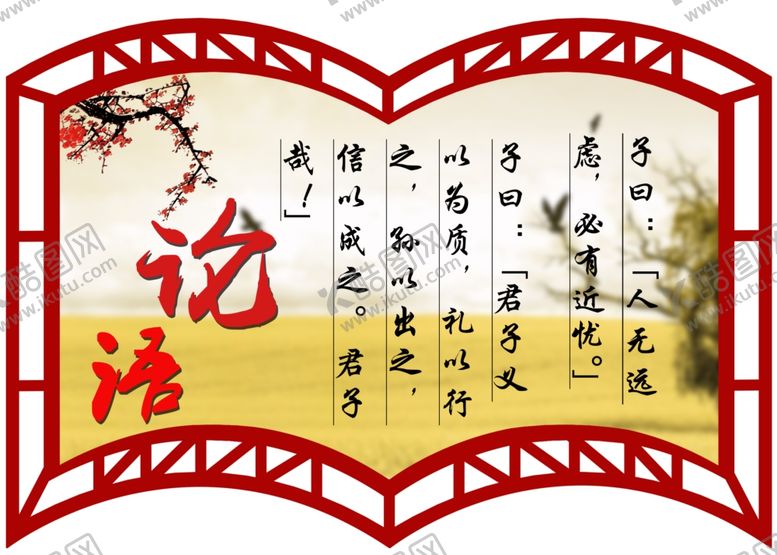 子曰：「人无远
虑，必有近忧。」
子曰：「君子义
以为质，礼以行
之，孙以出之，
信以成之。君子
哉！」
论语
酷图网
www.ikutu.com